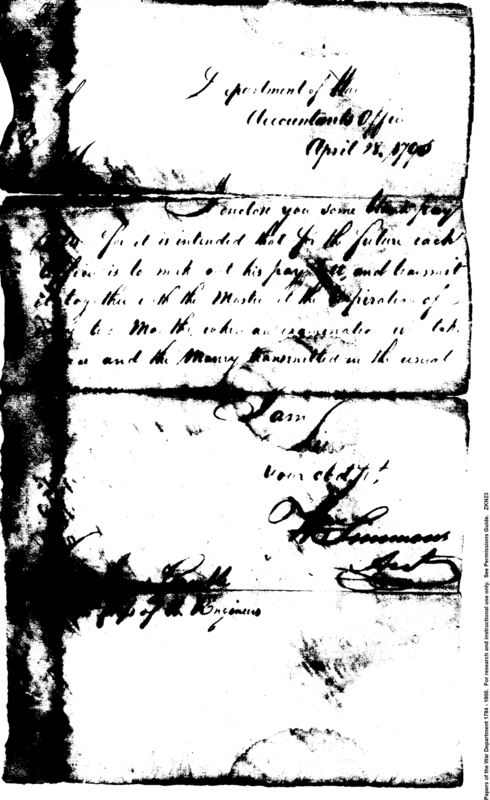 Department of War
Accountants Office
April 28, 1795
I enclose you some blank pay
for it is intended that for the future each
is to make out his pay and transmit
it together with the Muster at the expiration of
Months when an examination
and the Money transmitted in the usual
I am
Sir
your obd st
Wm Simmons
Acct
Corps of Engineers
Papers of the War Department 1784 - 1800. For research and instructional use only. See Permissions Guide. ZKN23